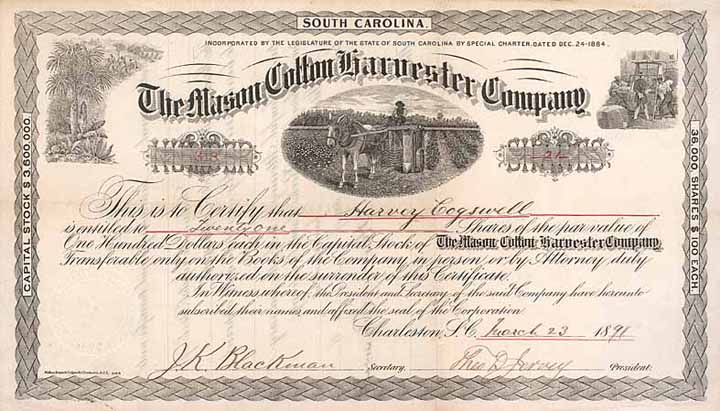 SOUTH CAROLINA.
INCORPORATED BY THE LEGISLATURE OF THE STATE OF SOUTH CAROLINA BY SPECIAL CHARTER, DATED DEC. 24-1884.
The Mason Cotton Harvester Company
CAPITAL STOCK $3,600,000.
36,000 SHARES $100 EACH.
21
This is to Certify that Harvey Cogswell
is entitled to Twenty one Shares of the par value of
One Hundred Dollars each in the Capital Stock of The Mason Cotton Harvester Company
Transferable only on the Books of the Company in person or by Attorney duly
authorized on the surrender of this Certificate.
In Witness whereof, the President and Secretary of the said Company have hereunto
subscribed their names and affixed the seal of the Corporation
Charleston, S.C. March 23 1891
J.K. Blackman Secretary. Theo D Jervey President.